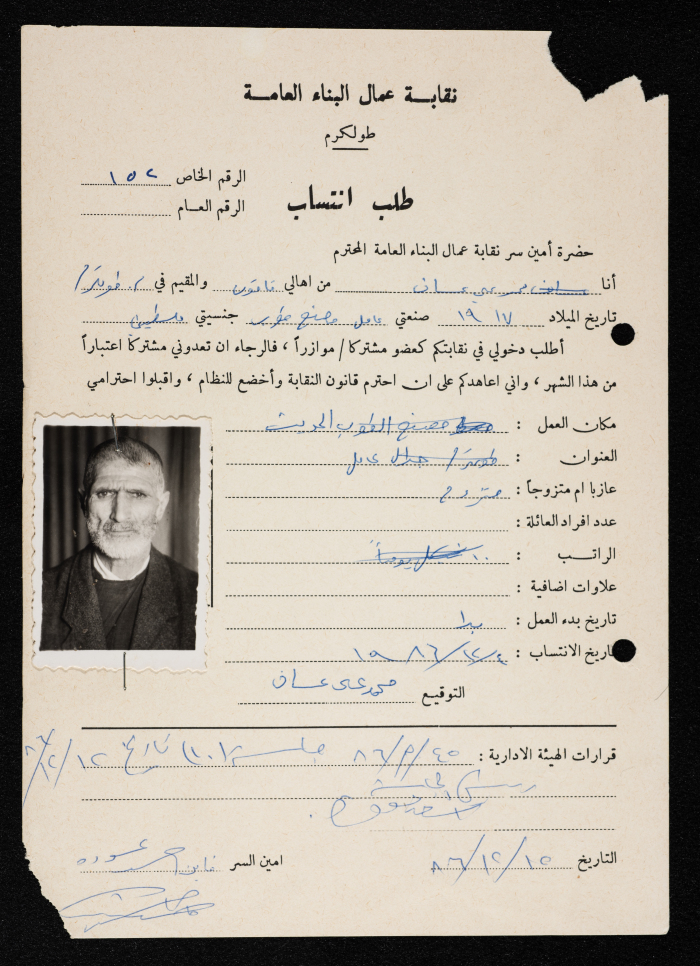 نقابة عمال البناء العامة
طولكرم
الرقم الخاص ١٥٢
الرقم العام
طلب انتساب
حضرة أمين سر نقابة عمال البناء العامة المحترم
أنا محمد علي عساف من اهالي والمقيم في
تاريخ الميلاد ١٩١٧ صنعتي عامل مصنع طوب جنسيتي فلسطيني
أطلب دخولي في نقابتكم كعضو مشتركا / موازراً ، فالرجاء ان تعدوني مشتركا اعتباراً
من هذا الشهر ، واني اعاهدكم على ان احترم قانون النقابة وأخضع للنظام ، واقبلوا احترامي
مكان العمل : مصنع الطوب الحديث
العنوان : عامل
عازبا ام متزوجاً : متزوج
عدد افراد العائلة :
الراتب :
علاوات اضافية :
تاريخ بدء العمل :
تاريخ الانتساب : ١٩٨٦/١٢/
التوقيع محمد علي عساف
قرارات الهيئة الادارية : جلسة تاريخ
رئيس الجلسة
التاريخ ٨٦/١٢/١٥ امين السر